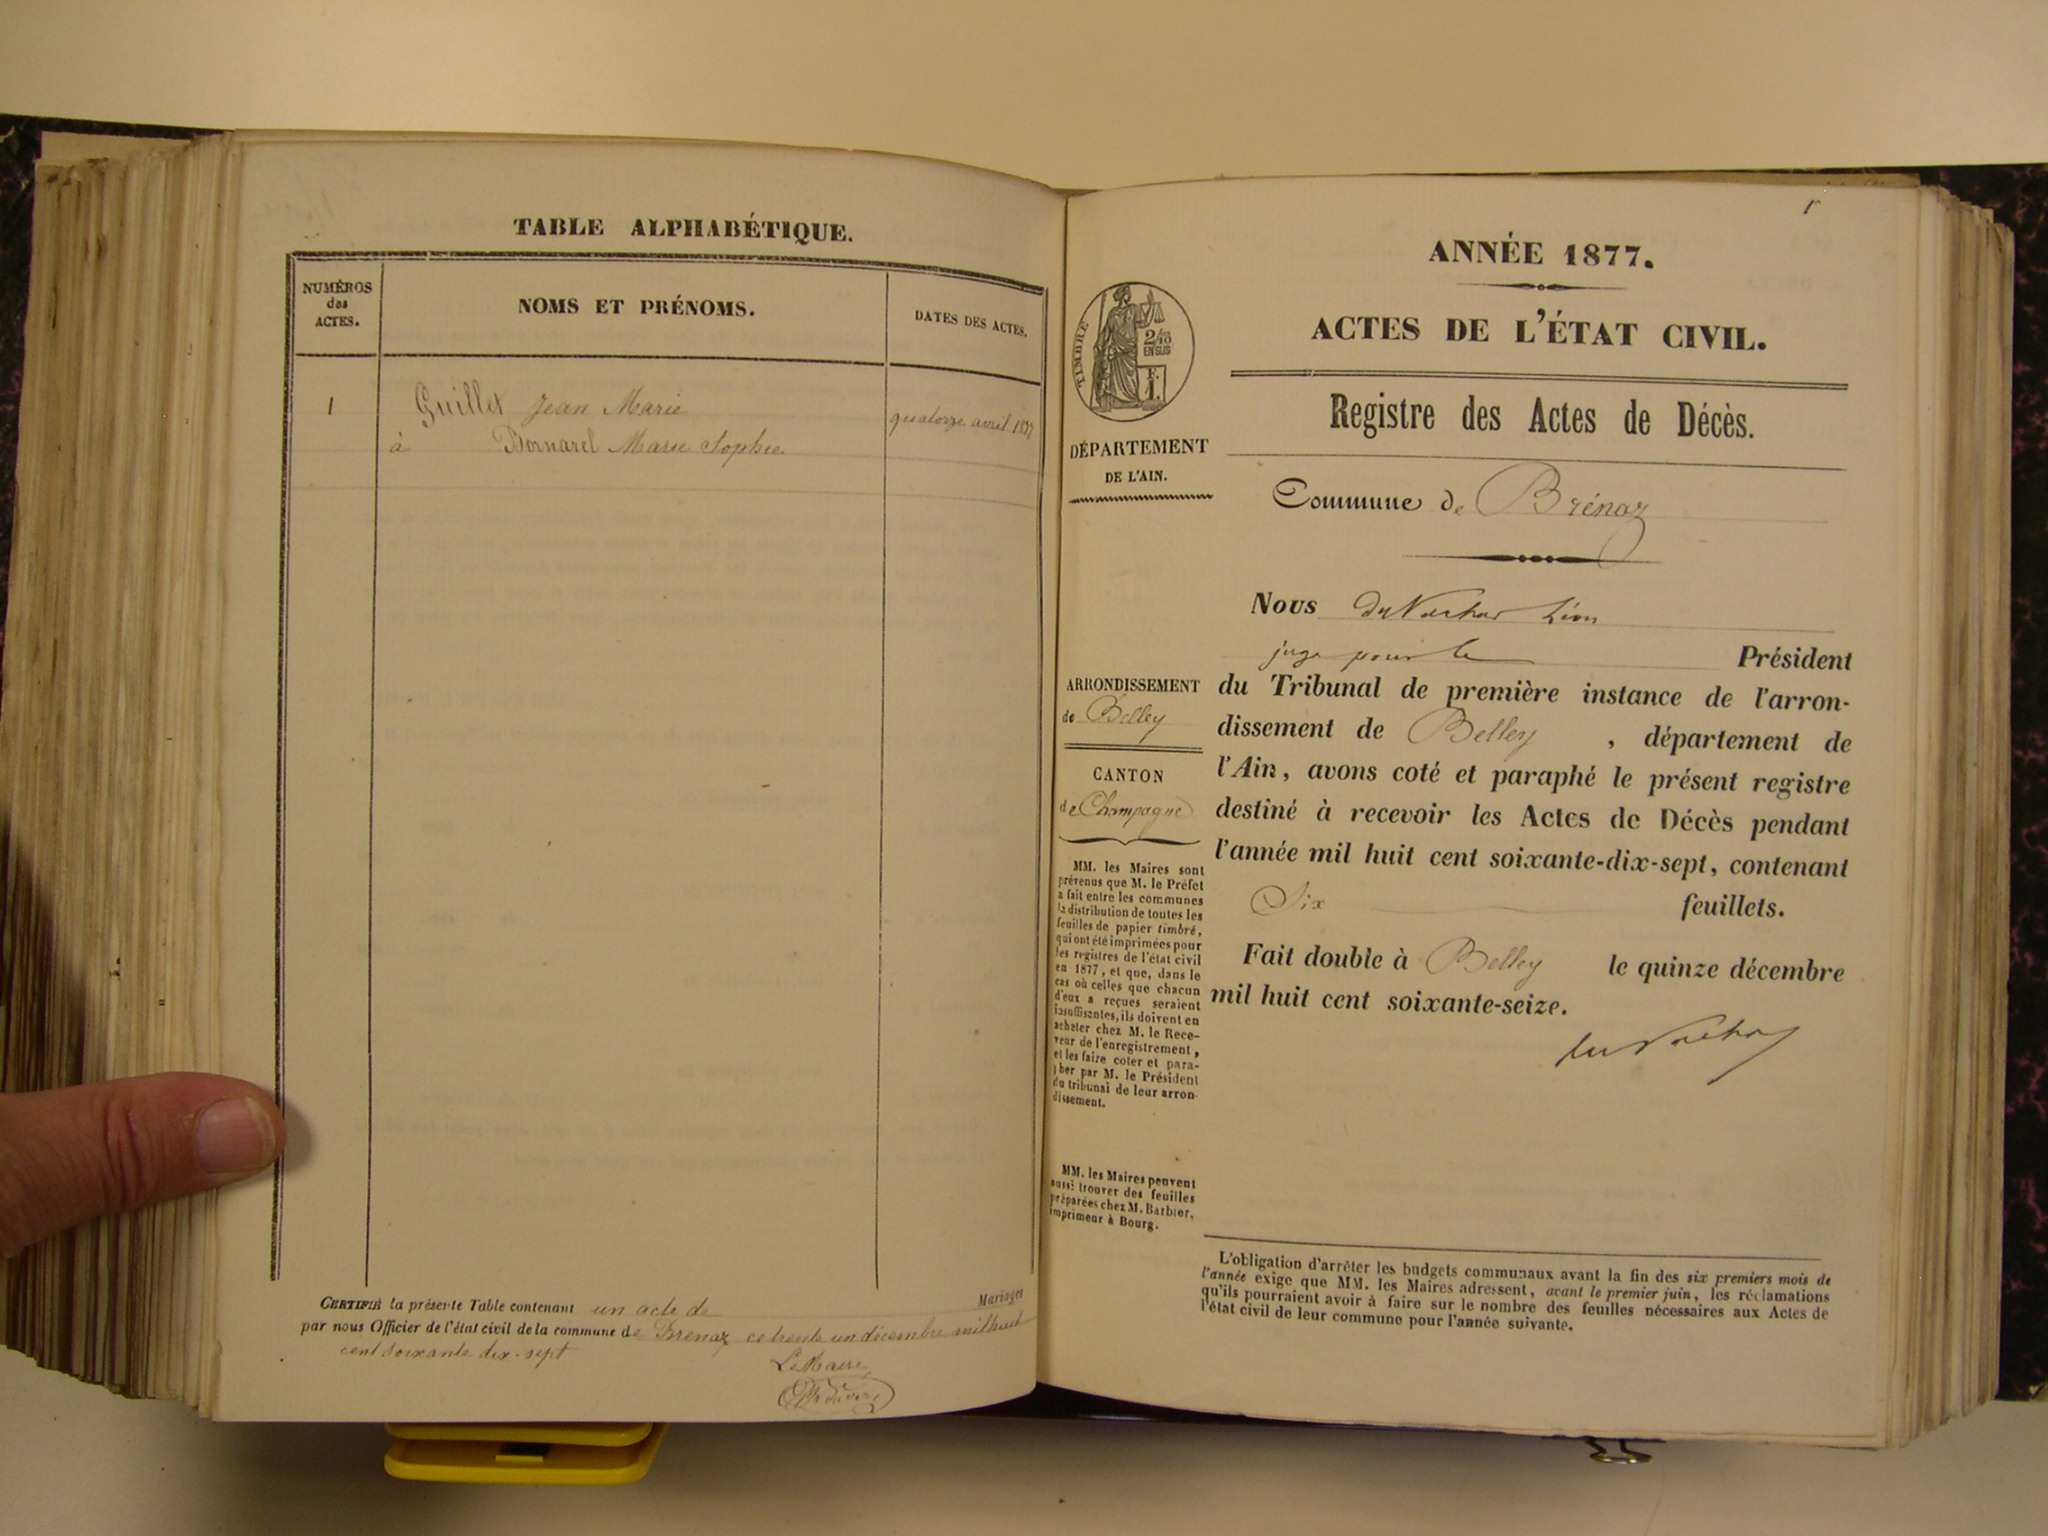 TABLE ALPHABÉTIQUE.
NUMÉROS
des
ACTES.
NOMS ET PRÉNOMS.
DATES DES ACTES.
1
Guillet Jean Marie
quatorze avril 1877
à Bornarel Marie Sophie
CERTIFIÉ la présente Table contenant un acte de Mariages
par nous Officier de l'état civil de la commune de Brenaz ce trente un décembre mil huit
cent soixante dix-sept
Le Maire,
1
ANNÉE 1877.
ACTES DE L'ÉTAT CIVIL.
TIMBRE
2/10
EN SUS
F.
1.
DÉPARTEMENT
DE L'AIN.
ARRONDISSEMENT
de Belley
CANTON
de Champagne
MM. les Maires sont
prévenus que M. le Préfet
a fait entre les communes
la distribution de toutes les
feuilles de papier timbré,
qui ont été imprimées pour
les registres de l'état civil
en 1877, et que, dans le
cas où celles que chacun
d'eux a reçues seraient
insuffisantes, ils doivent en
acheter chez M. le Rece-
veur de l'enregistrement,
et les faire coter et para-
pher par M. le Président
du tribunal de leur arron-
dissement.
MM. les Maires peuvent
aussi trouver des feuilles
préparées chez M. Barbier,
imprimeur à Bourg.
Registre des Actes de Décès.
Commune de Brénaz
Nous Léon
juge pour le Président
du Tribunal de première instance de l'arron-
dissement de Belley , département de
l'Ain, avons coté et paraphé le présent registre
destiné à recevoir les Actes de Décès pendant
l'année mil huit cent soixante-dix-sept, contenant
Six feuillets.
Fait double à Belley le quinze décembre
mil huit cent soixante-seize.
L'obligation d'arrêter les budgets communaux avant la fin des six premiers mois de
l'année exige que MM. les Maires adressent, avant le premier juin, les réclamations
qu'ils pourraient avoir à faire sur le nombre des feuilles nécessaires aux Actes de
l'état civil de leur commune pour l'année suivante.